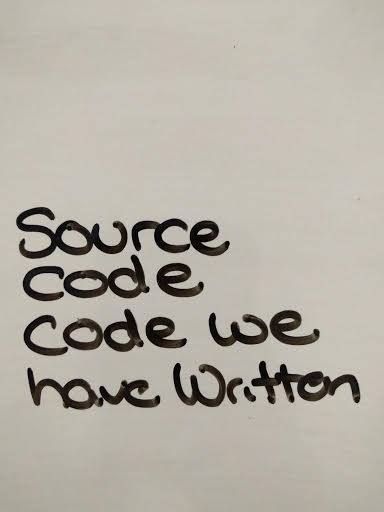 Source
code
Code we
have Written